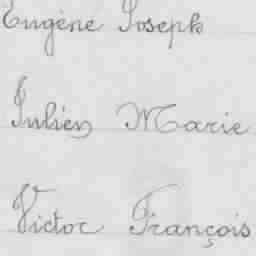 Eugène Joseph
Julien Marie
Victor François